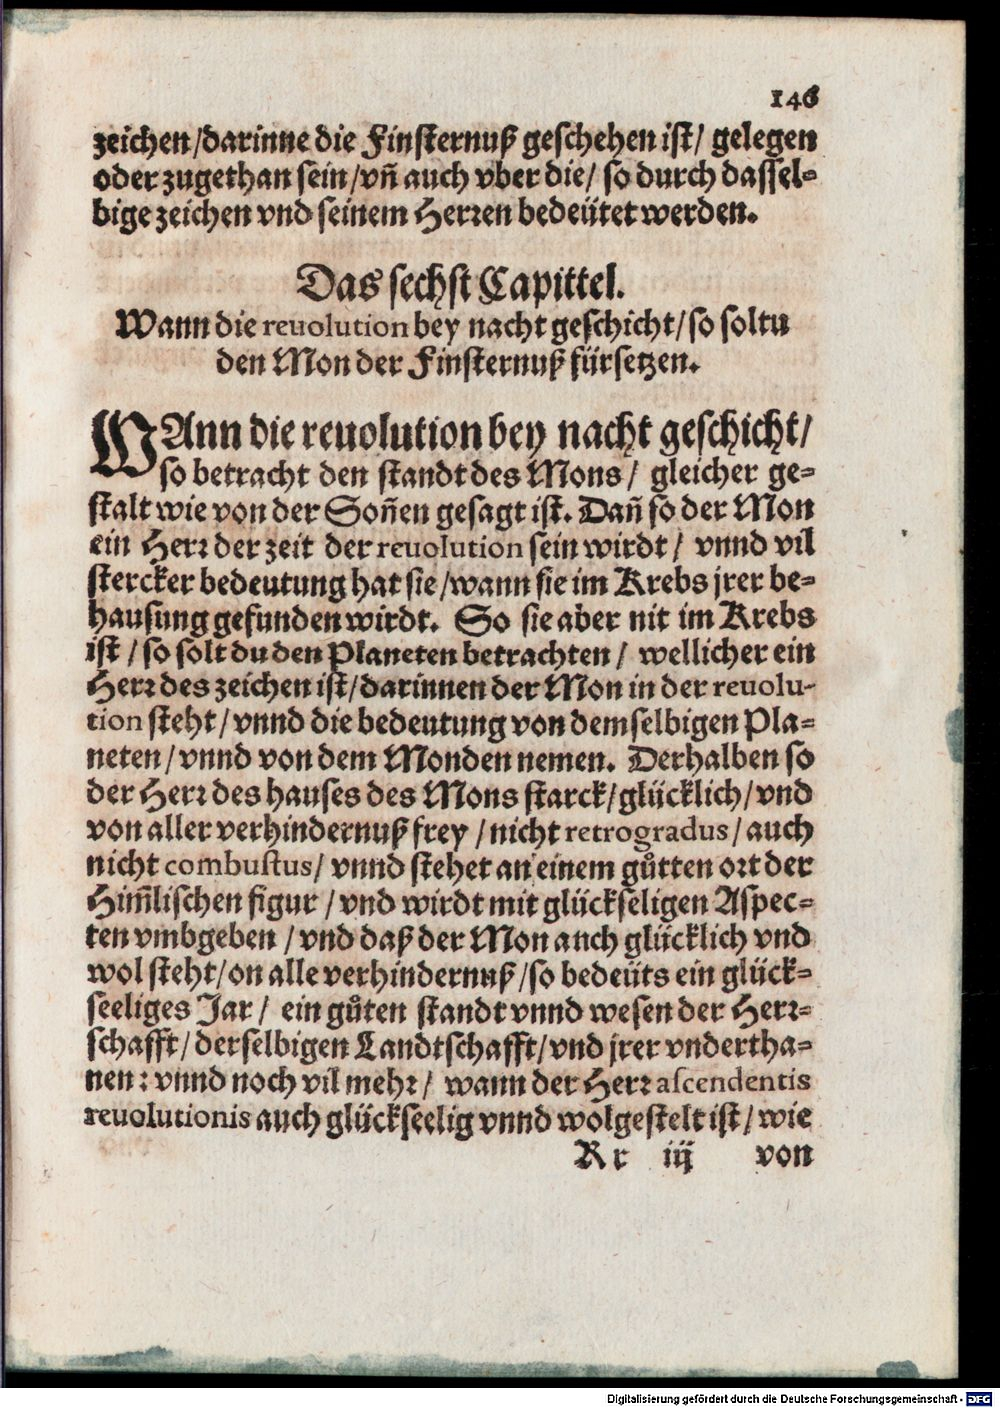 146
zeichen/darinne die Finsternuß geschehen ist/ gelegen
oder zugethan sein/vñ auch vber die/ so durch dassel-
bige zeichen vnd seinem Herren bedeütet werden.
Das sechst Capittel.
Wann die reuolution bey nacht geschicht/so soltu
den Mon der Finsternuß fürsetzen.
WAnn die reuolution bey nacht geschicht/
so betracht den standt des Mons/ gleicher ge-
stalt wie von der Soñen gesagt ist. Dañ so der Mon
ein Herr der zeit der reuolution sein wirdt/ vnnd vil
stercker bedeutung hat sie/wann sie im Krebs jrer be-
hausung gefunden wirdt. So sie aber nit im Krebs
ist/so solt du den Planeten betrachten/ wellicher ein
Herr des zeichen ist/darinnen der Mon in der reuolu-
tion steht/vnnd die bedeutung von demselbigen Pla-
neten/vnnd von dem Monden nemen. Derhalben so
der Herr des hauses des Mons starck/glücklich/vnd
von aller verhindernuß frey/nicht retrogradus/auch
nicht combustus/ vnnd stehet an einem gůtten ort der
Him̃lischen figur/vnd wirdt mit glückseligen Aspec-
ten vmbgeben/vnd daß der Mon auch glücklich vnd
wol steht/on alle verhindernuß/so bedeüts ein glück-
seeliges Jar/ ein gůten standt vnnd wesen der Herr-
schafft/derselbigen Landtschafft/vnd jrer vndertha-
nen: vnnd noch vil mehr/ wann der Herr ascendentis
reuolutionis auch glückseelig vnnd wolgestelt ist/wie
Rr iij von
Digitalisierung gefördert durch die Deutsche Forschungsgemeinschaft - DFG